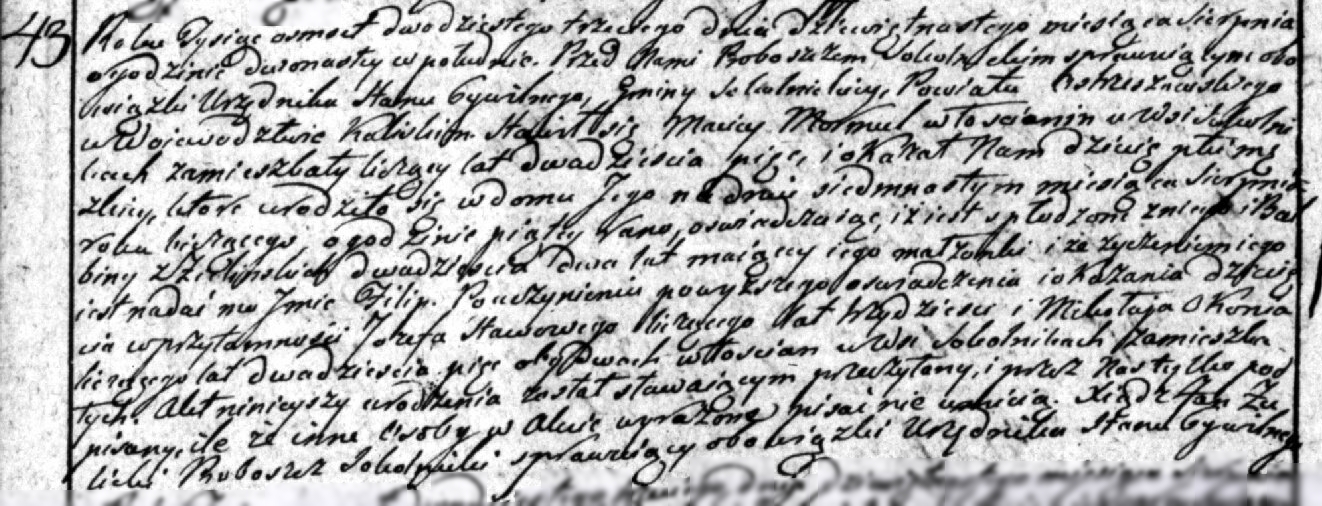 43 Roku Tysiąc osmset dwudziestego trzeciego dnia dziewiętnastego miesiąca Sierpnia
o godzinie dwonasty w południe. Przed Nami Proboszczem Sokolnickim sprawuiącym obo
wiązki Urzędnika Stanu Cywilnego, Gminy Sokolnickiey, Powiatu Ostrzeszowskiego
w Wojewodztwie Kaliskim Stawił się Maciey Mormul włościanin w Wsi Sokolni
kach zamieszkały liczący lat dwadziescia pięć, i okazał Nam dziecię płci mę
zkiey, ktore urodziło się w domu Jego na dniu siedmnastym miesiąca Sierpnia
roku bieżącego, o godzinie piąty rano, oswiadczaiąc, iż iest spłodzone z niego i Bal
biny z dwadziescia dwa lat maiący iego małżonki i że życzeniem iego
iest nadać mu Jmie Filip. Po uczynieniu powyższego oswiadczenia i okazania dziecię
cia w przytomności Jozefa Stawowego liczącego lat trzydziesci i Mikołaja Okonia
liczącego lat dwadziescia pięć obydwoch włoscian w Wsi Sokolnikach zamieszka
łych Akt ninieyszy urodzenia został stawaiącym przeczytany, i przez Nas tylko pod
pisany, ile że inne Osoby w Akcie wyrażone pisać nie umieią. Xiądz Jan Żu
licki Proboszcz Sokolnicki sprawuiący obowiązki Urzędnika Stanu Cywilnego